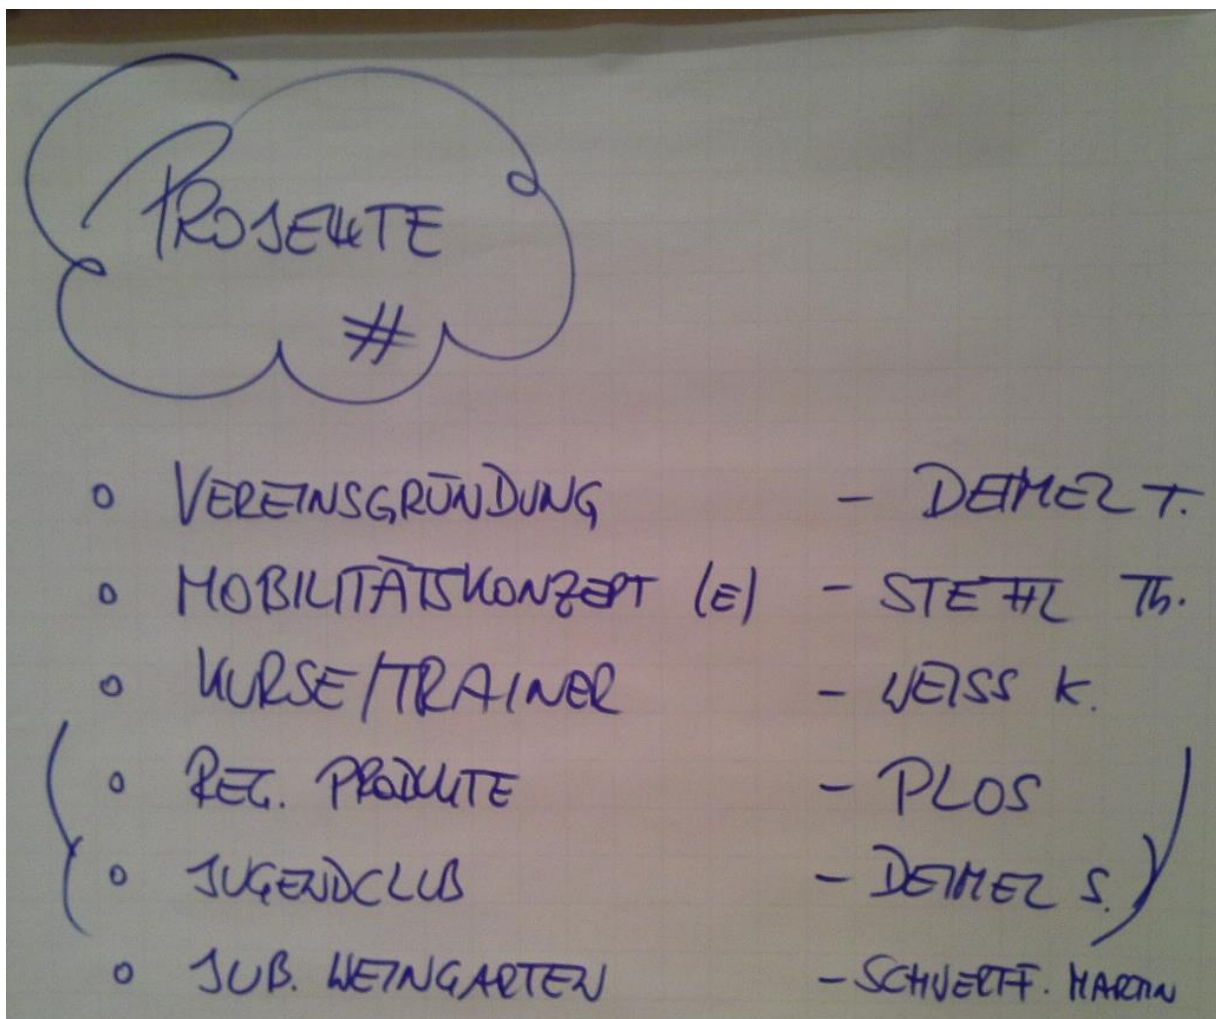 PROJEKTE
#
o VEREINSGRÜNDUNG - DEIMEL T.
o MOBILITÄTSKONZEPT (E) - STEHL Th.
o KURSE/TRAINER - WEISS K.
( o REG. PRODUKTE - PLOS )
( o JUGENDCLUB - DEIMEL S. )
o JUB. WEINGARTEN - SCHWERTF. MARTIN